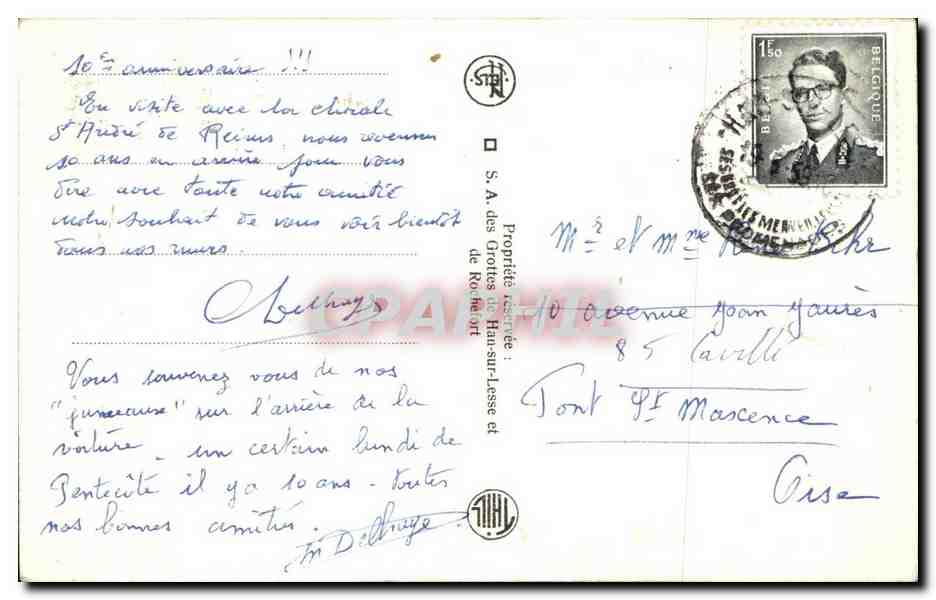 10e anniversaire !!!
En visite avec la chorale
St André de Reims, nous revenons
10 ans en arrière pour vous
dire avec toute notre amitié
notre souhait de vous voir bientôt
dans nos murs
Delhaye
Vous souvenez vous de nos
"jumeaux" sur l'arrière de la
voiture - un certain lundi de
Pentecôte il y a 10 ans - toutes
nos bonnes amitiés.
M Delhaye
Nels
Propriété réservée :
S. A. des Grottes de Han-sur-Lesse et
de Rochefort
THILL
1F50
BELGIË
BELGIQUE
SES GROTTES MERVEILLEUSES
SES PROMENADES
Mr et Mme
10 avenue Jean Jaurès
85
Pont Ste Maxence
Oise
CPAPHIL